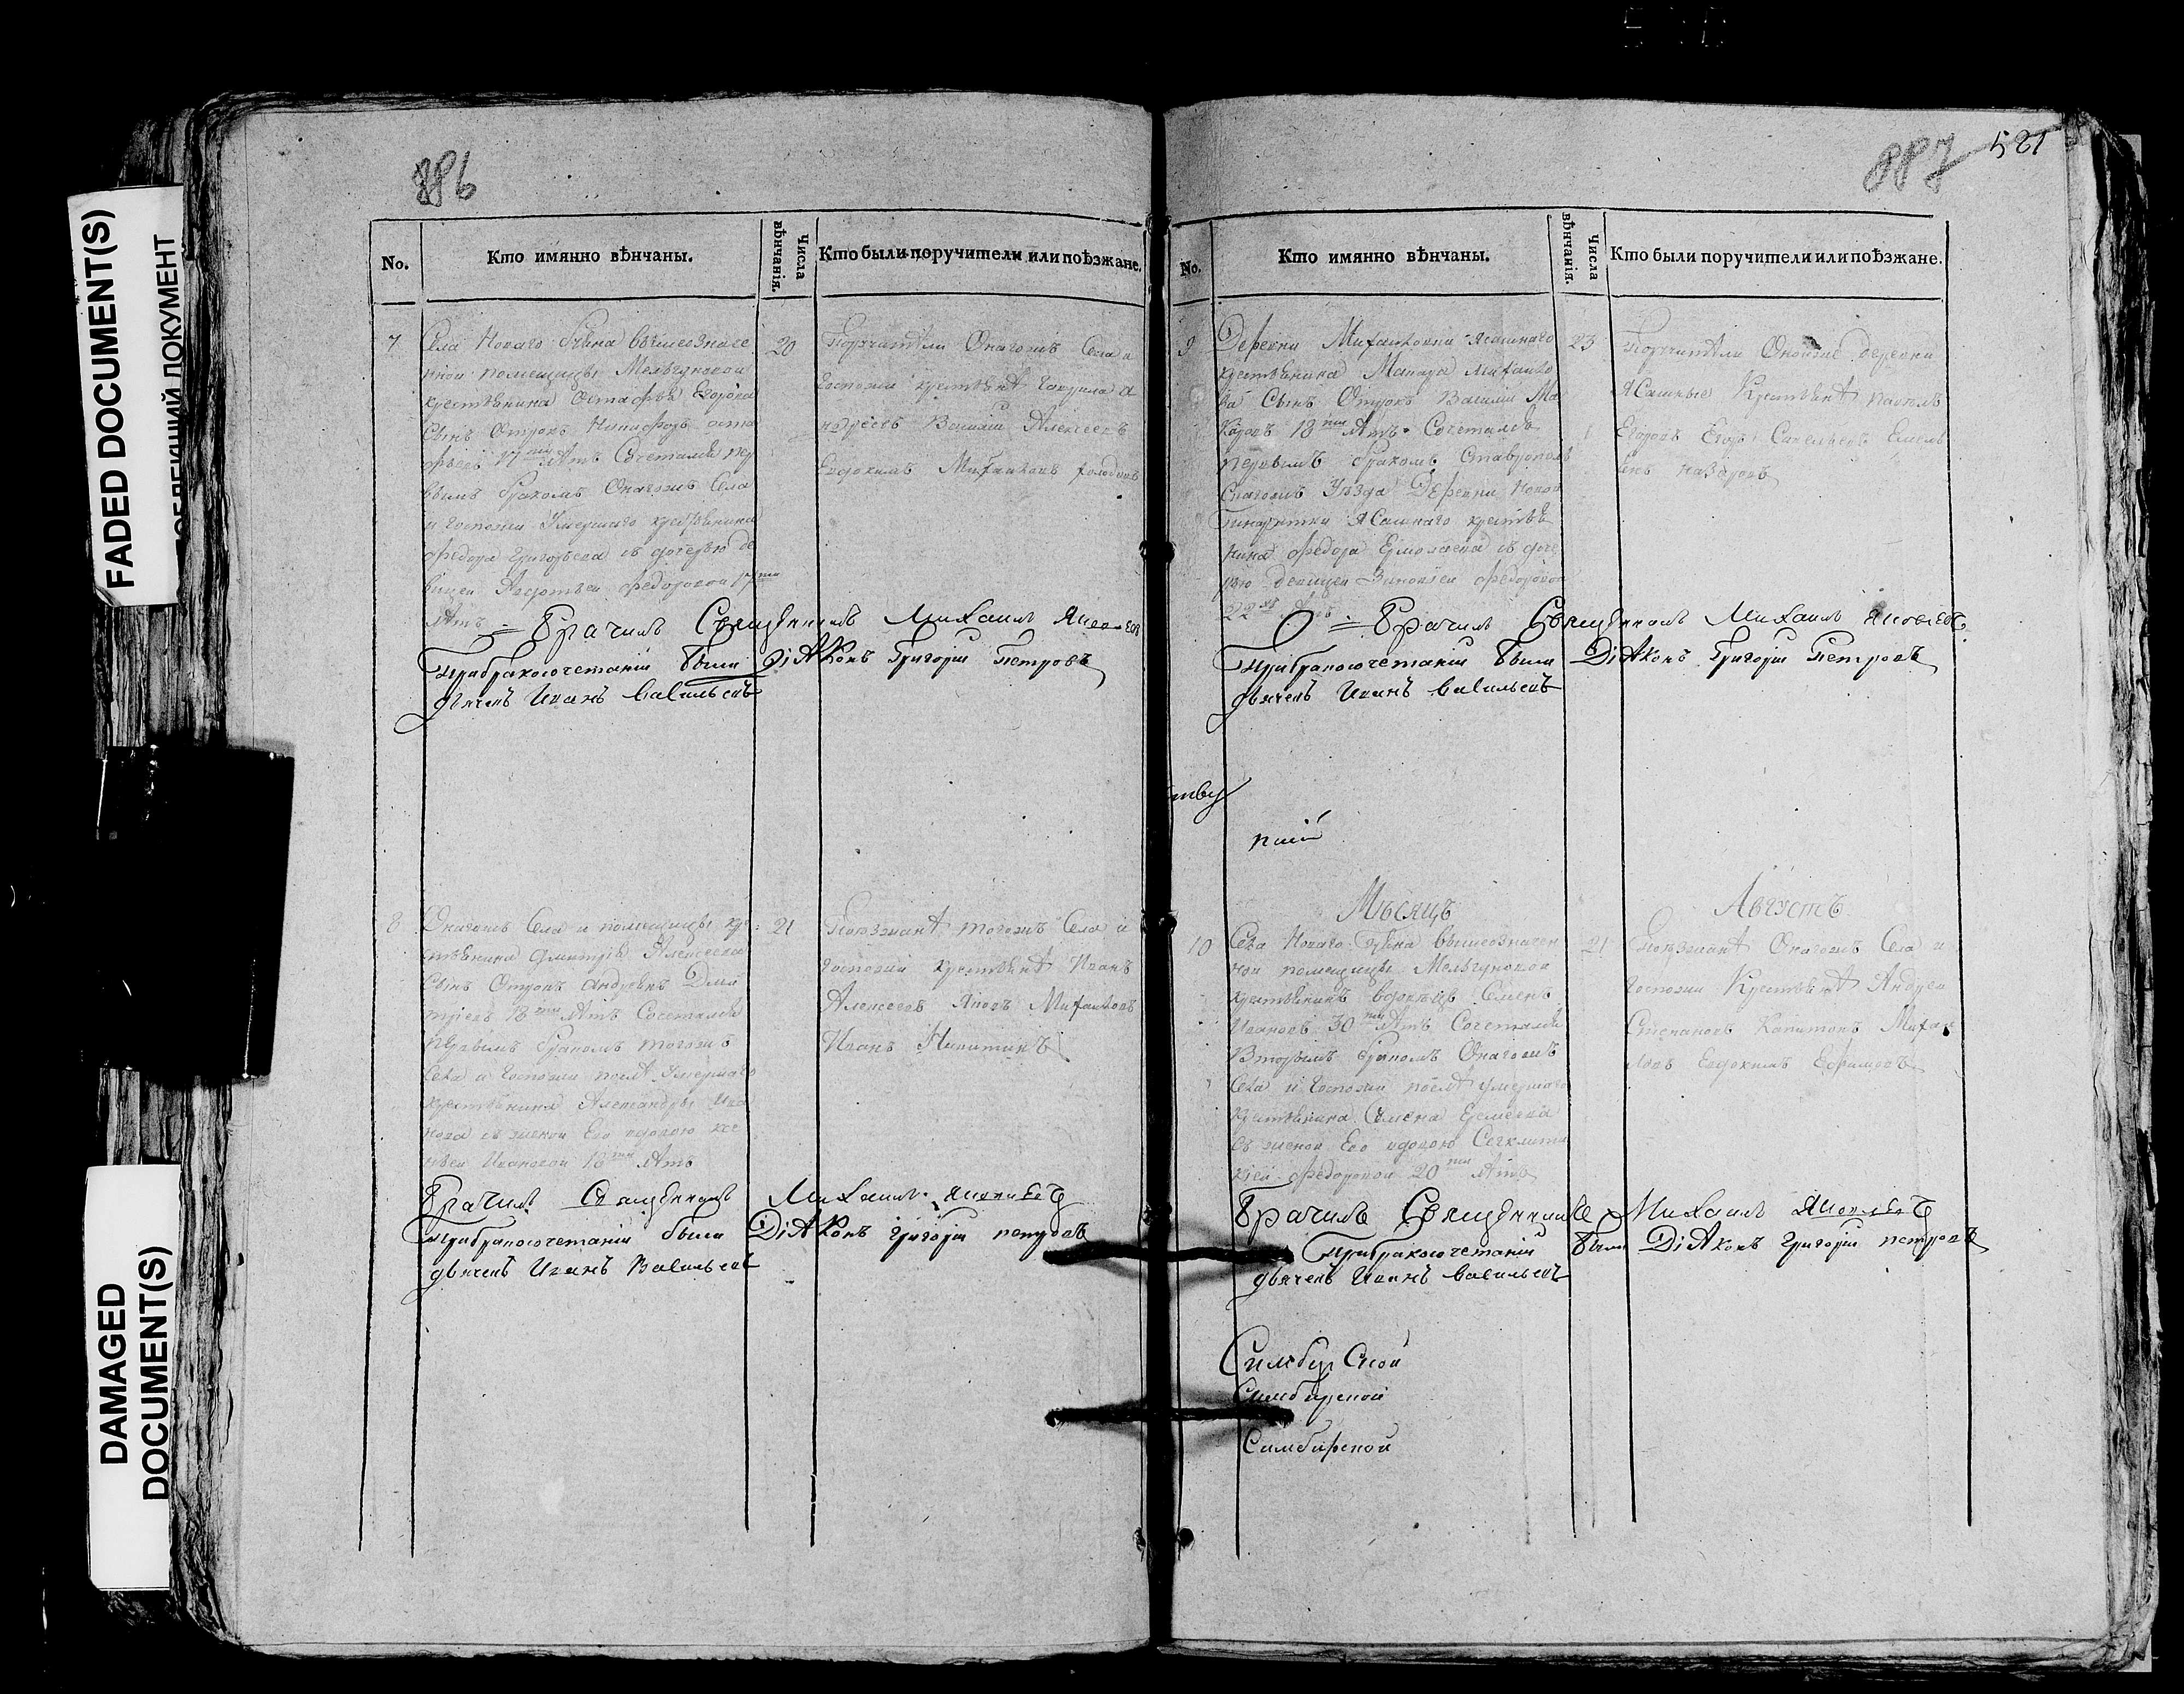 886
No.
Кто имянно вѣнчаны.
Числа вѣнчанія.
Кто были поручители или поѣзжане.
7
Села Новаго вышеозначе
нной помещицы Мельгуновой
крестьянина Остафья Егорова
Сынъ Отрокъ Никифоръ оста
фьевъ 17 лѣтъ Сочетался пер
вымъ бракомъ Онагожъ Села
и Госпожи Умершаго крестьянина
Федора Григорьева съ дочерью де
вицей Федоровой
лѣтъ
20
Поручители Онагожъ Села и
Госпожи крестьянѣ Гаврила а
ндреевъ Василий Алексеевъ
Евдокимъ Михайловъ
Врачилъ Священникъ Михаилъ Яковлевъ
При бракосочетаніи были Діаконъ Григорій Петровъ
дьячекъ Иванъ Васильевъ
8
Онагожъ Села и помещицы кре
стьянина Дмитрія Алексеева
Сынъ Отрокъ андреянъ Дми
тріевъ 18 лѣтъ Сочетался
первымъ бракомъ тогожъ
Села и Госпожи послѣ Умершаго
крестьянина Александры Ива
нова съ женой Его вдовою
Ивановой 18 лѣтъ
21
Поѣзжанѣ тогожъ Села и
Госпожи крестьянѣ Иванъ
Алексеевъ Яковъ Михайловъ
Иванъ Никитинъ
Врачилъ Священникъ Михаилъ Яковлевъ
При бракосочетаніи были Діаконъ Григорій петровъ
дьячекъ Иванъ Васильевъ
887
581
No.
Кто имянно вѣнчаны.
Числа вѣнчанія.
Кто были поручители или поѣзжане.
9
Деревни Михайловки Ясашнаго
крестьянина Макара Михайло
ва Сынъ Отрокъ Василий Ма
каровъ 18 лѣтъ Сочетался
первымъ бракомъ Ставрополь
Скагожъ Уѣзда Деревни Новой
Ясашнаго крестья
нина Федора Ермолаева съ доче
рью девицей Зиновьей Федоровой
22 лѣтъ
23
Поручители Онойже деревни
Ясашные Крестьянѣ Павелъ
Егоровъ Егоръ Савельевъ Емель
янъ Назаровъ
Врачилъ Священникъ Михаилъ Яковлевъ
При бракосочетаніи были Діаконъ Григорій Петровъ
дьячекъ Иванъ Васильевъ
ству
Мѣсяцъ
Августъ
10
Села Новаго вышеозначен
ной помещицы Мельгуновой
крестьянинъ вдовецъ Семенъ
Ивановъ 30 лѣтъ Сочетался
Вторымъ бракомъ Онагожъ
Села и Госпожи послѣ умершаго
крестьянина Семена Еремеева
съ женой Его вдовою Секлити
кіей Федоровой 20 лѣтъ
21
Поѣзжанѣ Онагожъ Села и
Госпожи Крестьянѣ Андрей
Степановъ Капитонъ Михай
ловъ Евдокимъ Ефимовъ
Врачилъ Священникъ Михаилъ Яковлевъ
При бракосочетаніи были Діаконъ Григорій петровъ
дьячекъ Иванъ Васильевъ
Симбирской
Симбирской
FADED DOCUMENT(S)
DAMAGED
DOCUMENT(S)